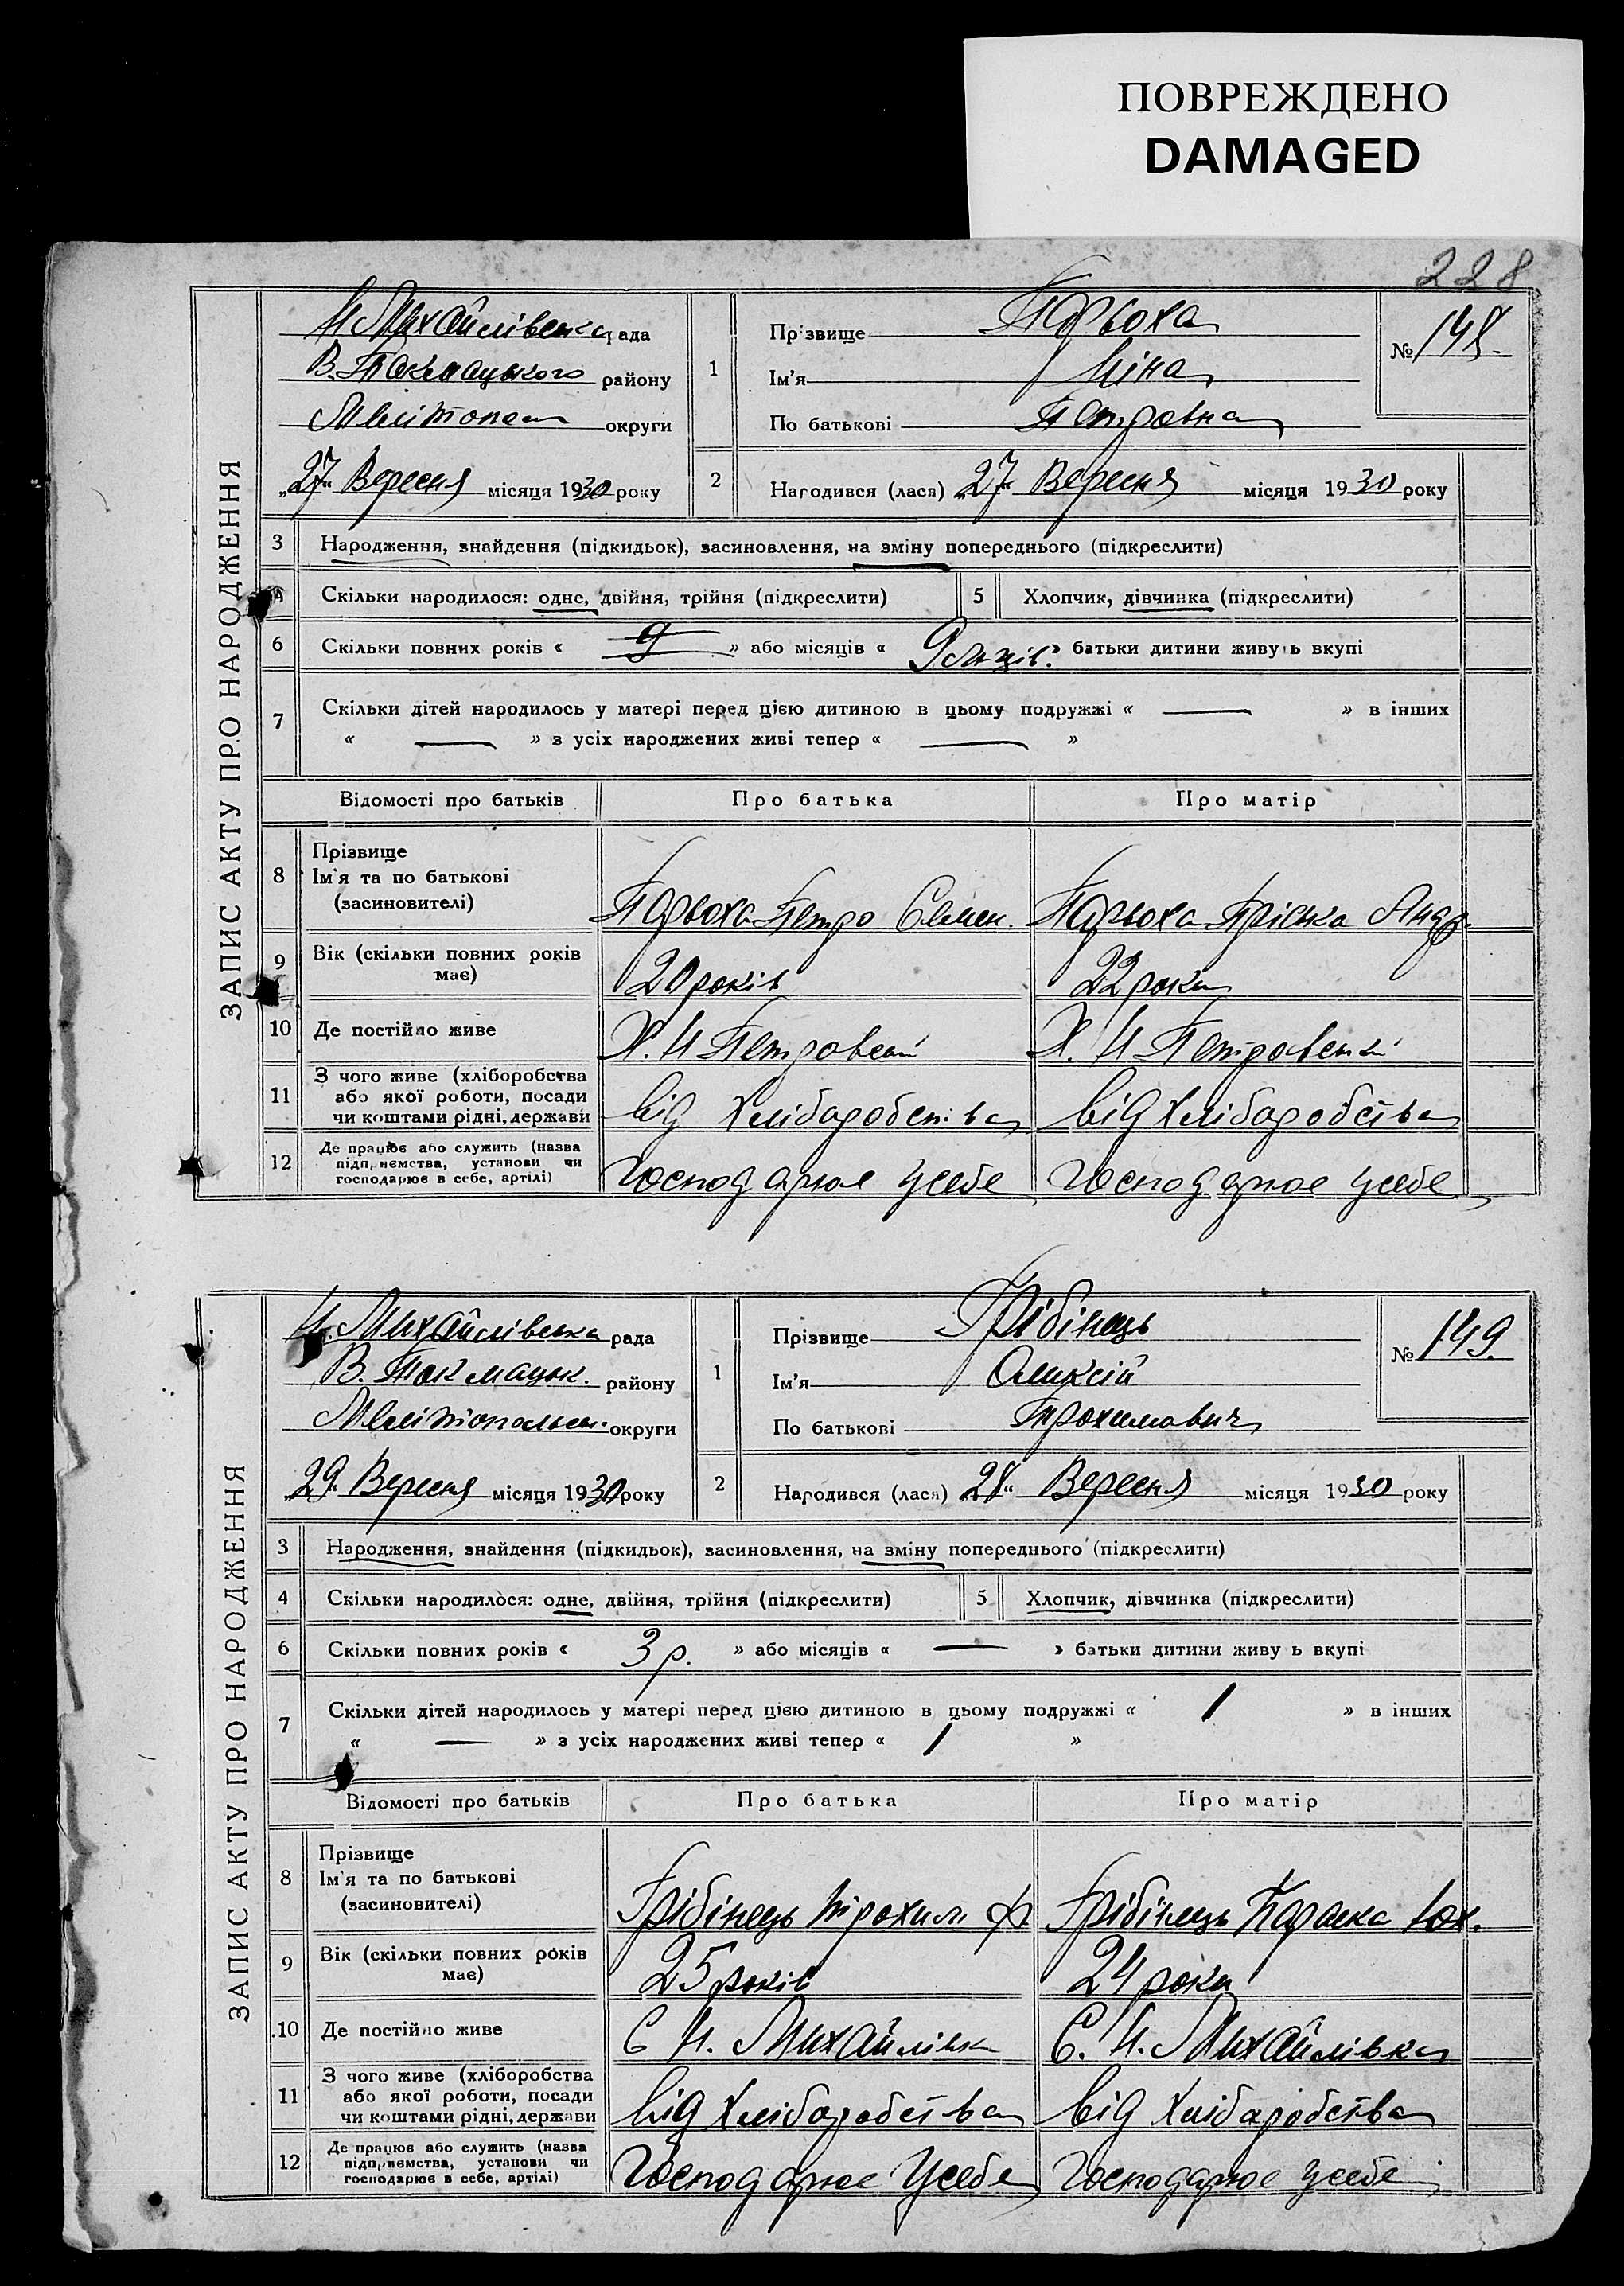 ПОВРЕЖДЕНО
DAMAGED
228
ЗАПИС АКТУ ПРО НАРОДЖЕННЯ
Н Михайлівська рада
В. Токмацького району
округи
„27“ Вересня місяця 1930 року
1
Прізвище
Ім'я Ніна
По батькові Петровна
№ 148.
2 Народився (лася) „27“ Вересня місяця 1930 року
3 Народження, знайдення (підкидьок), засиновлення, на зміну попереднього (підкреслити)
4 Скільки народилося: одне, двійня, трійня (підкреслити) 5 Хлопчик, дівчинка (підкреслити)
6 Скільки повних років « 9 » або місяців « 9 » батьки дитини живуть вкупі
7 Скільки дітей народилось у матері перед цією дитиною в цьому подружжі « — » в інших
« — » з усіх народжених живі тепер « — »
Відомості про батьків Про батька Про матір
8 Прізвище
Ім'я та по батькові
(засиновителі)
Петро Семен. Пріська Андр.
9 Вік (скільки повних років
має)
20 років 22 роки
10 Де постійно живе Х. Н Петровський Х. Н Петровський
11 З чого живе (хліборобства
або якої роботи, посади
чи коштами рідні, держави
від Хліборобства від Хліборобства
12 Де працює або служить (назва
підприємства, установи чи
господарює в себе, артілі)
Господарює усебе Господарює усебе
ЗАПИС АКТУ ПРО НАРОДЖЕННЯ
Н. Михайлівська рада
В. Токмацьк. району
Мелітопольськ. округи
„29“ Вересня місяця 1930 року
1
Прізвище Грібінець
Ім'я Оликсій
По батькові Трохимович
№ 149.
2 Народився (лася) „28“ Вересня місяця 1930 року
3 Народження, знайдення (підкидьок), засиновлення, на зміну попереднього (підкреслити)
4 Скільки народилося: одне, двійня, трійня (підкреслити) 5 Хлопчик, дівчинка (підкреслити)
6 Скільки повних років « 3 р. » або місяців « — » батьки дитини живуть вкупі
7 Скільки дітей народилось у матері перед цією дитиною в цьому подружжі « 1 » в інших
« — » з усіх народжених живі тепер « 1 »
Відомості про батьків Про батька Про матір
8 Прізвище
Ім'я та по батькові
(засиновителі)
Грібінець Трохим Ф Грібінець Параска Юх.
9 Вік (скільки повних років
має)
25 років 24 роки
10 Де постійно живе С Н. Михайлівка С. Н. Михайлівка
11 З чого живе (хліборобства
або якої роботи, посади
чи коштами рідні, держави
від Хліборобства від Хліборобства
12 Де працює або служить (назва
підприємства, установи чи
господарює в себе, артілі)
Господарює Усебе Господарює усебе